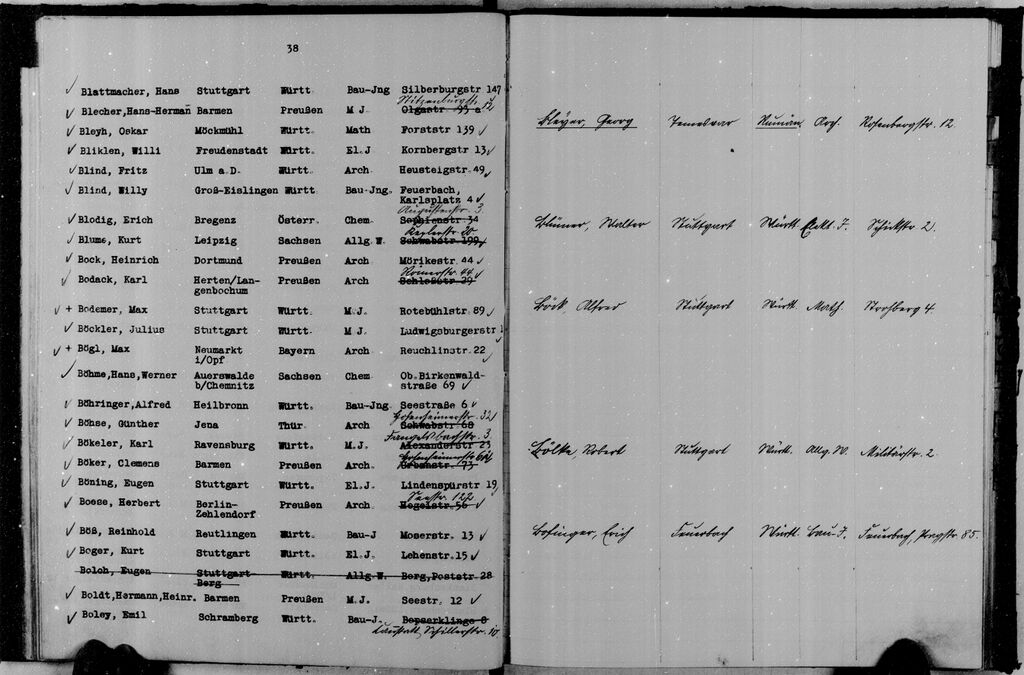 38
Blattmacher, Hans Stuttgart Württ. Bau-Jng Silberburgstr 147
Blecher,Hans-Herman̄ Barmen Preußen M J Olgastr 93 a
Bleyh, Oskar Möckmühl Württ. Math Forststr 139
Bliklen, Willi Freudenstadt Württ. El.J Kornbergstr 13
Blind, Fritz Ulm a.D. Württ. Arch Heusteigstr.49
Blind, Willy Groß-Eislingen Württ Bau-Jng. Feuerbach,
Karlsplatz 4
Augustenstr. 3
Blodig, Erich Bregenz Österr. Chem Sophienstr 34
Keplerstr. 20
Blume, Kurt Leipzig Sachsen Allg.W. Schwabstr 199
Bock, Heinrich Dortmund Preußen Arch Mörikestr.44
Römerstr. 44
Bodack, Karl Herten/Lan- Preußen Arch Schloßstr 29
genbochum
+ Bodemer, Max Stuttgart Württ. M.J. Rotebühlstr.89
Böckler, Julius Stuttgart Württ. M J. Ludwigsburgerstr
+ Bögl, Max Neumarkt Bayern Arch Reuchlinstr.22
i/Opf
Böhme,Hans,Werner Auerswalde Sachsen Chem Ob.Birkenwald-
b/Chemnitz straße 69
Böhringer,Alfred Heilbronn Württ. Bau-Jng Seestraße 6
Hohenheimerstr. 32
Böhse, Günther Jena Thür. Arch Schwabstr 68
Fangelsbachstr. 3
Bökeler, Karl Ravensburg Württ. M.J. Alexanderstr 23
Hohenheimerstr.
Böker, Clemens Barmen Preußen Arch. Urbanstr. 73
Böning, Eugen Stuttgart Württ. El.J Lindenspürstr 19
Seestr. 122
Boese, Herbert Berlin- Preußen Arch. Hegelstr.56
Zehlendorf
Böß, Reinhold Reutlingen Württ. Bau-J Moserstr. 13
Boger, Kurt Stuttgart Württ. El.J. Lehenstr.15
Boloh, Eugen Stuttgart Württ. Allg.W. Berg,Poststr 28
Berg
Boldt,Hermann,Heinr. Barmen Preußen M.J. Seestr. 12
Boley, Emil Schramberg Württ. Bau-J. Bopserklinge 8
Cannstatt, Schillerstr. 10
Bleyer, Georg Temesvar Rumän. Arch. Rosenbergstr. 12
Blümer, Walter Stuttgart Württ. Elekt. J. Schickstr 2.
Böck, Alfred Stuttgart Württ. Math. Strohberg 4.
Bölke, Robert Stuttgart Württ. Allg. W. Militärstr. 2.
Bofinger, Erich Feuerbach Württ. Bau-J. Feuerbach, Pragstr. 85.